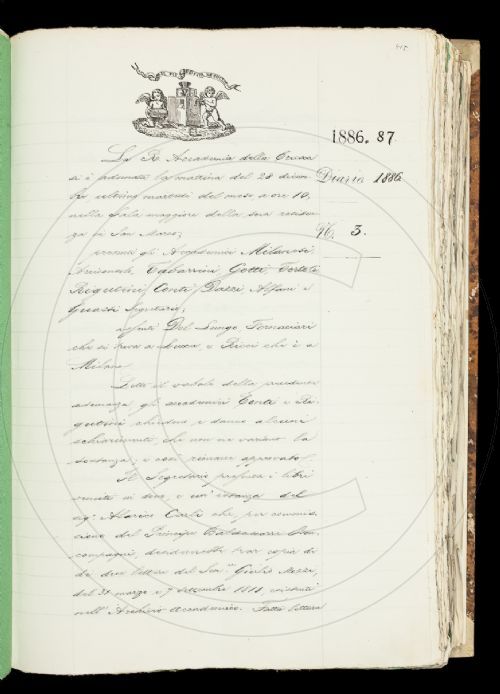 415
1886. 87.
Diario 1886.
N. 3.
La R. Accademia della Crusca
si è adunata la mattina del 28 dicem
bre ultimo martedì del mese, a ore 10,
nella sala maggiore della sua residen
za in San Marco;
presenti gli Accademici Milanesi,
Tabarrini, Gotti, Tortoli
Rigutini, Conti, Dazzi, Alfani e
Guasti Segretario;
assenti Del Lungo, Fornaciari
che si trova a Lucca, e Ricci che è a
Milano.
Letto il verbale della precedente
adunanza gli accademici Conti e Ri
gutini chiedono e danno alcuni
schiarimenti che non ne variano la
sostanza, e così rimane approvato.
Il Segretario presenta i libri
venuti in dono, e un'istanza del
sig. Alarico Carli che per commis
sione del Principe Baldassarre Bon
compagni, desidererebbe trar copia di
due lettere del Sen.
del 31 marzo e 9 settembre 1811, esistenti
nell'Archivio Accademico. Fatta lettura